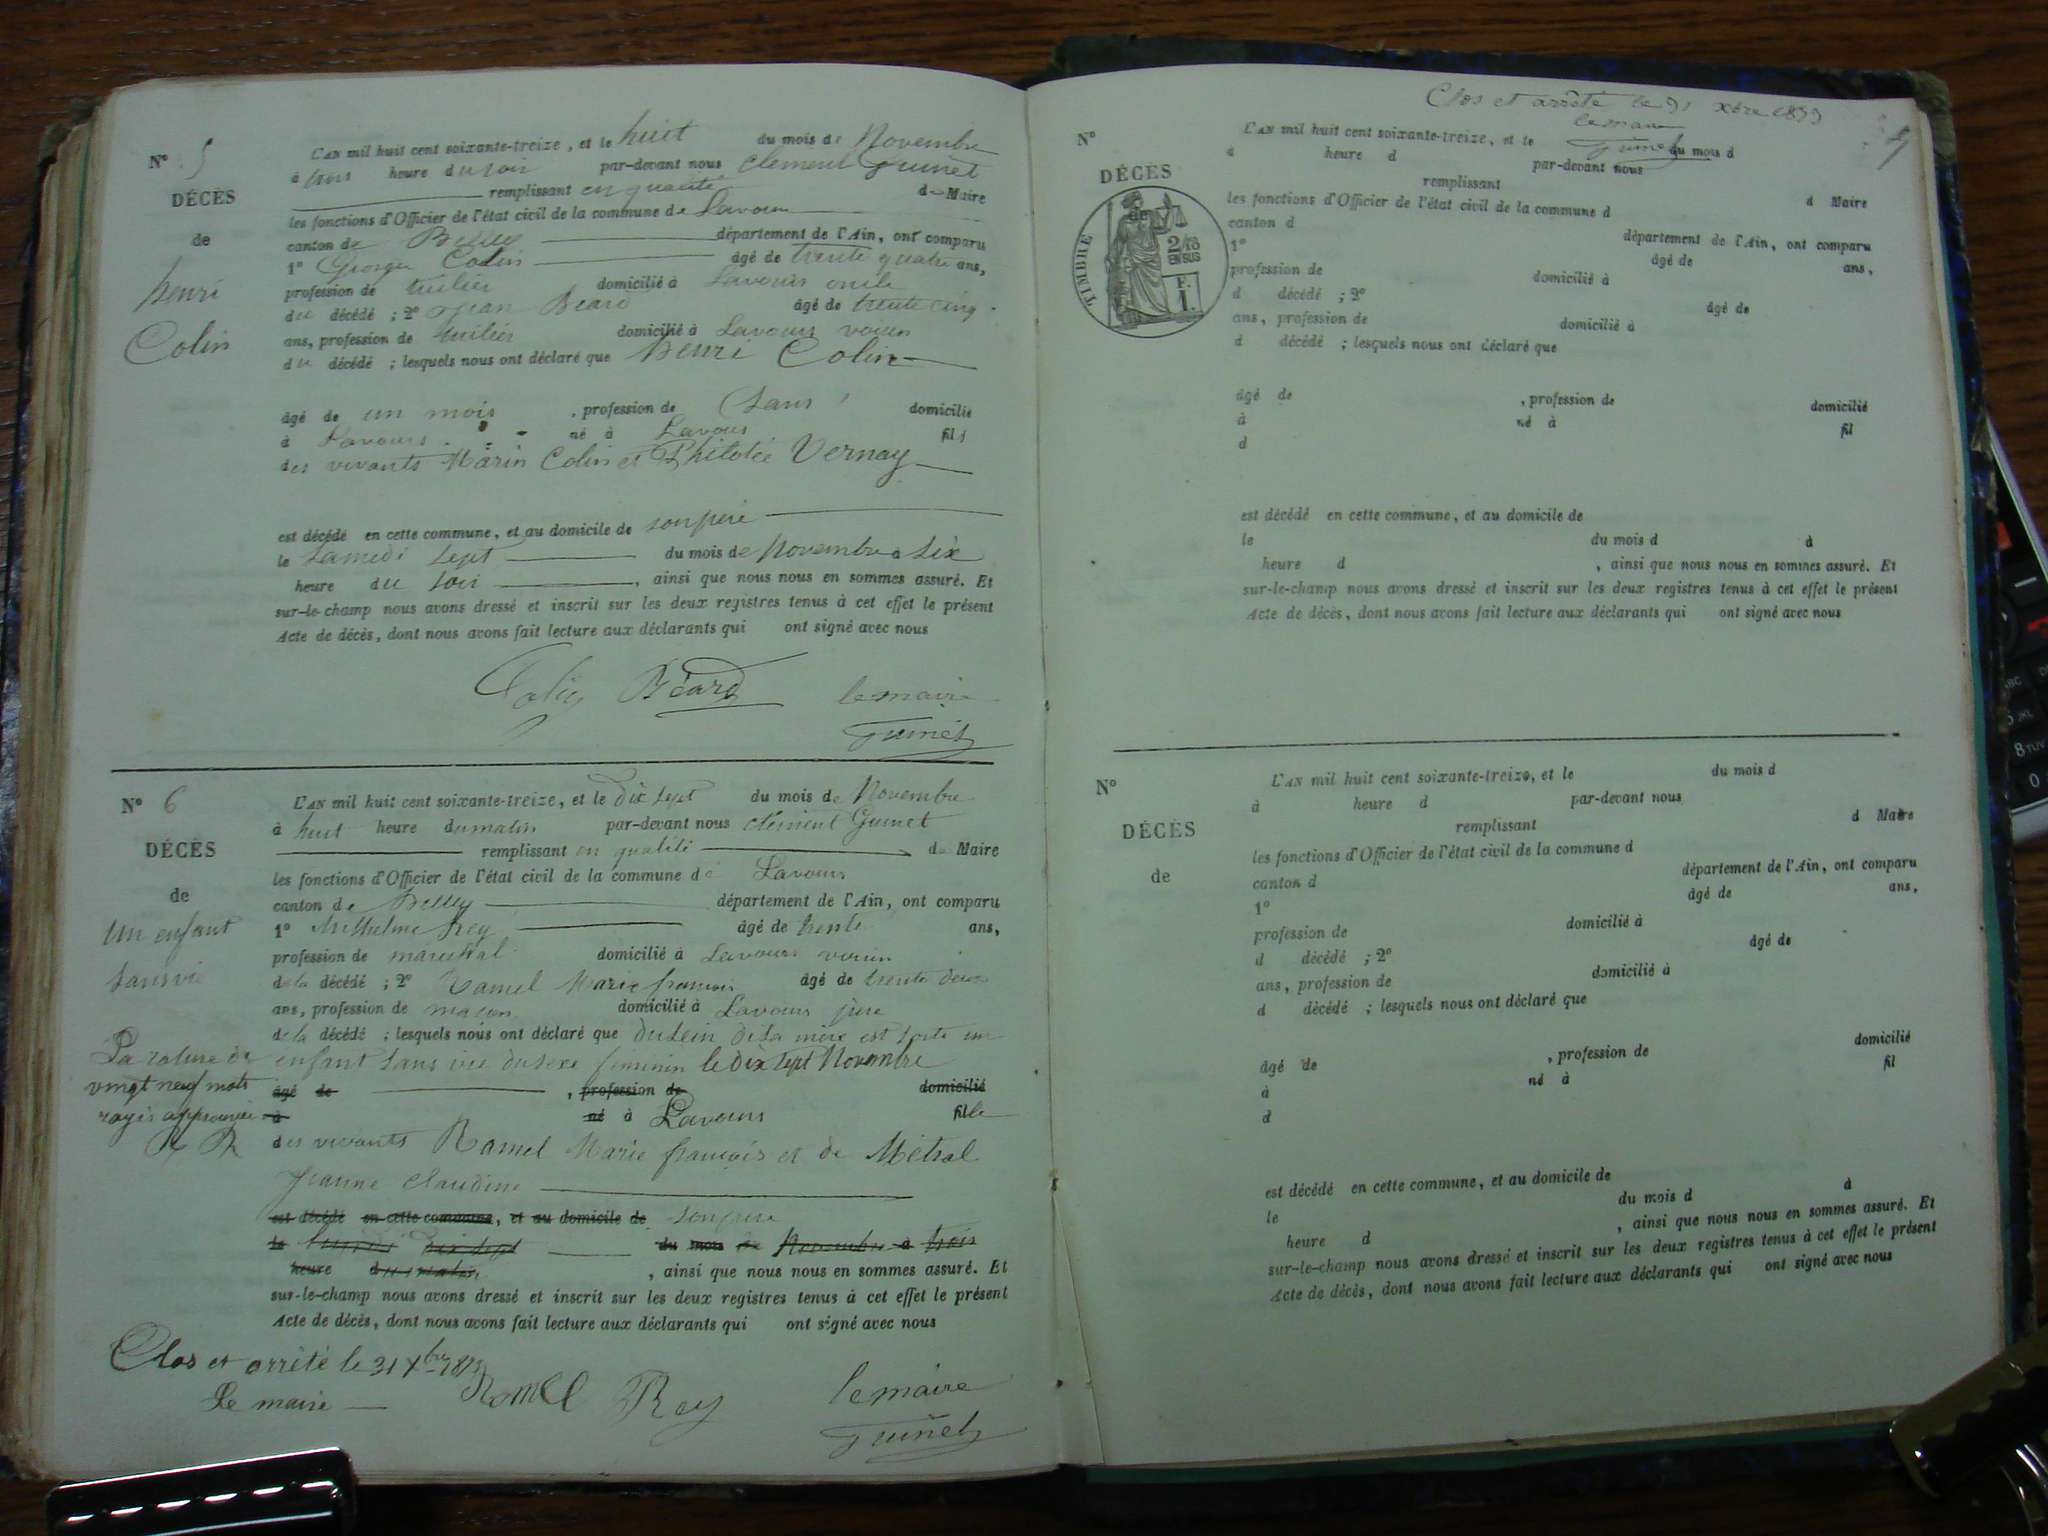 N° 5
DÉCÈS
de
henri
Colin
L'AN mil huit cent soixante-treize, et le huit du mois de Novembre
à heure du soir par-devant nous Clément Guinet
remplissant en qualité de Maire
les fonctions d'Officier de l'état civil de la commune de Lavours
canton de Belley département de l'Ain, ont comparu
1° George Colin âgé de trente quatre ans,
profession de tuilier domicilié à Lavours oncle
du décédé ; 2° Jean Béard âgé de trente cinq
ans, profession de tuilier domicilié à Lavours voisin
du décédé ; lesquels nous ont déclaré que henri Colin
âgé de un mois , profession de Sans domicilié
à Lavours né à Lavours fils
des vivants Marin Colin et Philotée Vernay
est décédé en cette commune, et au domicile de son père
le Samedi sept du mois de Novembre à six
heure du soir , ainsi que nous nous en sommes assuré. Et
sur-le-champ nous avons dressé et inscrit sur les deux registres tenus à cet effet le présent
Acte de décès, dont nous avons fait lecture aux déclarants qui ont signé avec nous
Colin Béard le maire
Guinet
N° 6
DÉCÈS
de
Un enfant
sans vie
La rature de
vingt neuf mots
rayés approuvée
R R
L'AN mil huit cent soixante-treize, et le dix sept du mois de Novembre
à huit heure du matin par-devant nous Clément Guinet
remplissant en qualité de Maire
les fonctions d'Officier de l'état civil de la commune de Lavours
canton de Belley département de l'Ain, ont comparu
1° Anthelme Rey âgé de trente ans,
profession de maréchal domicilié à Lavours voisin
de la décédé ; 2° Ramel Marie françois âgé de trente deux
ans, profession de maçon domicilié à Lavours père
de la décédé ; lesquels nous ont déclaré que du sein de la mère est sorti un
enfant sans vie du sexe féminin le dix sept Novembre
âgé de , profession de domicilié
à né à Lavours fille
des vivants Ramel Marie françois et de Métral
Jeanne Claudine
est décédé en cette commune, et au domicile de son père
le lundi dix sept du mois de Novembre à trois
heure du matin , ainsi que nous nous en sommes assuré. Et
sur-le-champ nous avons dressé et inscrit sur les deux registres tenus à cet effet le présent
Acte de décès, dont nous avons fait lecture aux déclarants qui ont signé avec nous
Clos et arrêté le 31 Xbre 1873
Le maire Ramel Rey le maire
Guinet
Clos et arrêté le 31 xbre 1873
le maire
Guinet
N°
DÉCÈS
de
TIMBRE
2/10 EN SUS
F. 1.
L'AN mil huit cent soixante-treize, et le du mois d
à heure d par-devant nous
remplissant d Maire
les fonctions d'Officier de l'état civil de la commune d
canton d département de l'Ain, ont comparu
1° âgé de ans,
profession de domicilié à
d décédé ; 2° âgé de
ans, profession de domicilié à
d décédé ; lesquels nous ont déclaré que
âgé de , profession de domicilié
à né à fil
d
est décédé en cette commune, et au domicile de
le du mois d à
heure d , ainsi que nous nous en sommes assuré. Et
sur-le-champ nous avons dressé et inscrit sur les deux registres tenus à cet effet le présent
Acte de décès, dont nous avons fait lecture aux déclarants qui ont signé avec nous
N°
DÉCÈS
de
L'AN mil huit cent soixante-treize, et le du mois d
à heure d par-devant nous
remplissant d Maire
les fonctions d'Officier de l'état civil de la commune d
canton d département de l'Ain, ont comparu
1° âgé de ans,
profession de domicilié à
d décédé ; 2° âgé de
ans, profession de domicilié à
d décédé ; lesquels nous ont déclaré que
âgé de , profession de domicilié
à né à fil
d
est décédé en cette commune, et au domicile de
le du mois d à
heure d , ainsi que nous nous en sommes assuré. Et
sur-le-champ nous avons dressé et inscrit sur les deux registres tenus à cet effet le présent
Acte de décès, dont nous avons fait lecture aux déclarants qui ont signé avec nous